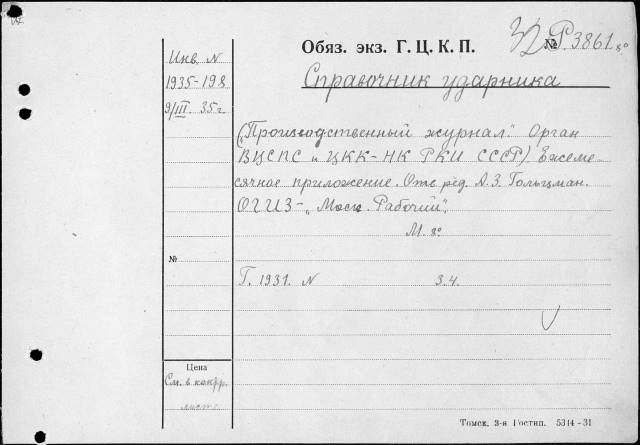 Обяз. экз. Г. Ц. К. П.
32 № Р. 3861 8°
Инв. N
1935-198
9/III. 35 г.
Справочник ударника
("Производственный журнал". Орган
ВЦСПС и ЦКК-НК РКИ СССР). Ежеме
сячное приложение. Отв. ред. А. З. Гольцман.
ОГИЗ-"Моск. Рабочий".
М. 8°
№
Г. 1931. N 3.4.
Цена
См. в контр.
листе
Томск, 3-я Гостип. 5314-31